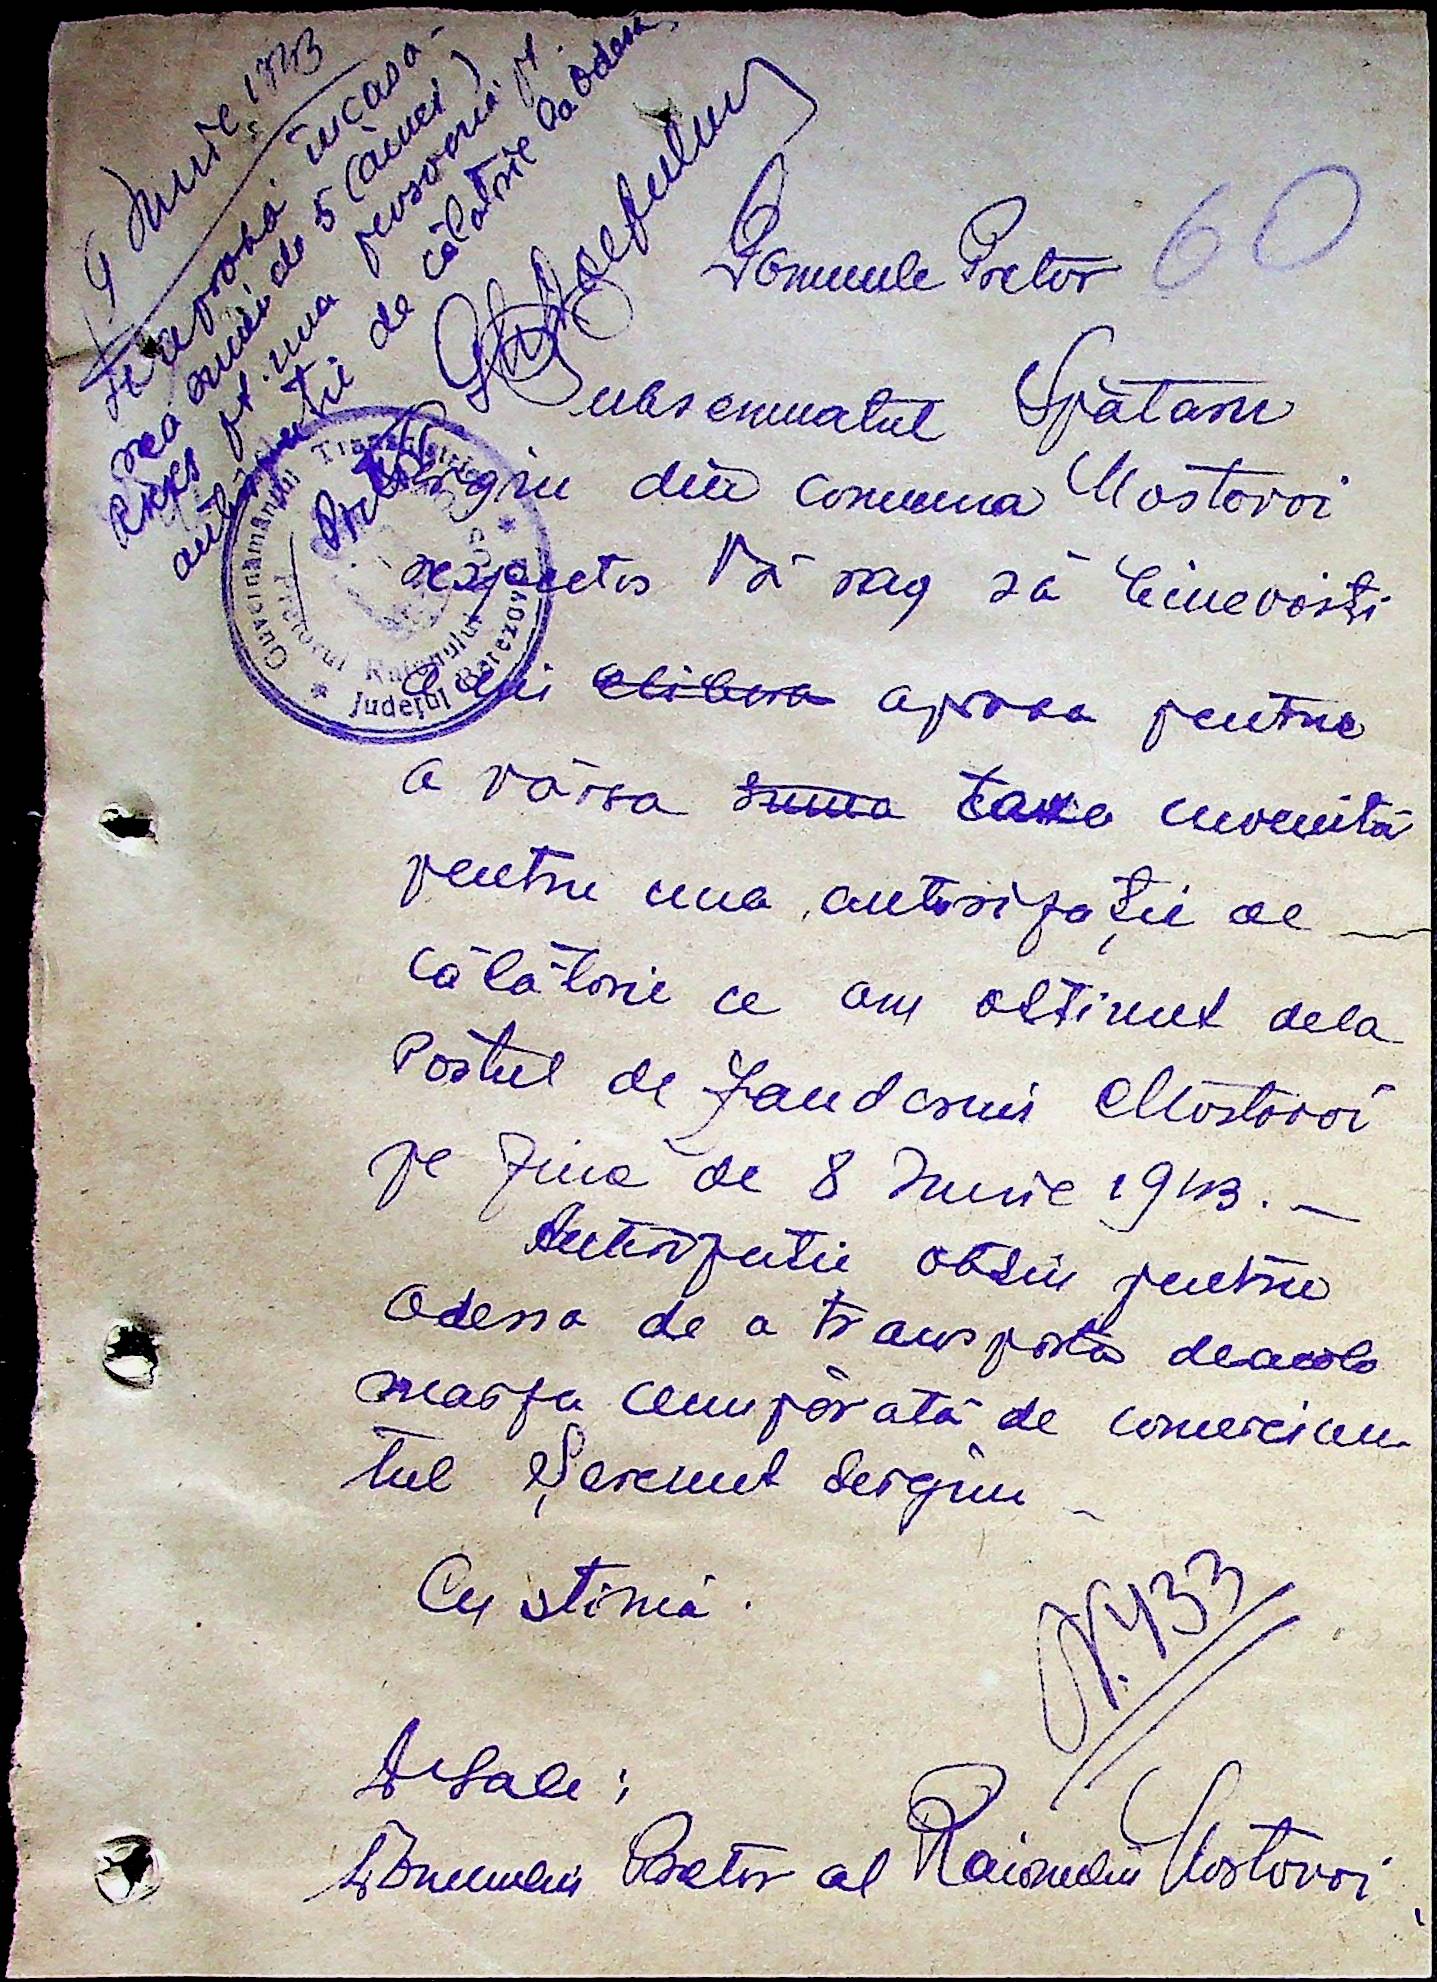 9 Iunie 1943
Se aprobă încasa-
rea sumei de 5 (cinci)
RKKS pt. una persoană pt.
autorizatie de călătorie la Odesa
Pretor
Guvernământul Transnistriei
Județul Berezovca
Pretorul Raionului
60
Domnule Pretor
Subsemnatul Spătaru
Sergiu din comuna Mostovoi
respectos Vă rog să binevoiți
a-mi elibera aproba pentru
a vărsa suma taxa cuvenită
pentru una autorizație de
călătorie ce am obținut dela
Postul de Jandarmi Mostovoi
pe ziua de 8 Iunie 1943. —
Autorizatie obtin pentru
Odessa de a transporta deacolo
marfa cumpărată de comercian-
tul Șeremet Sergiu —
Cu stimă.
N. 433
D-Sale;
Domnului Pretor al Raionului Mostovoi